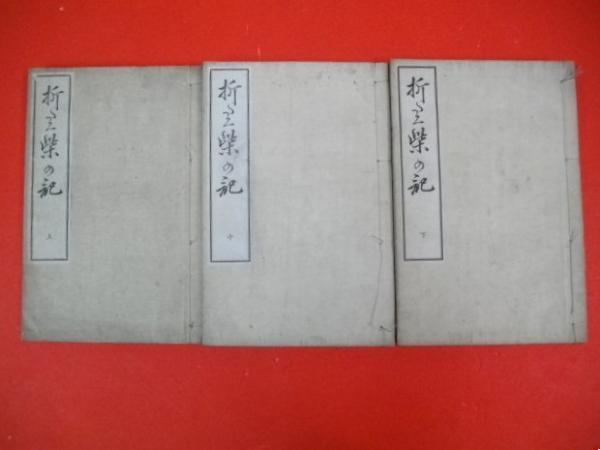 折多く柴の記
上
折多く柴の記
中
折多く柴の記
下